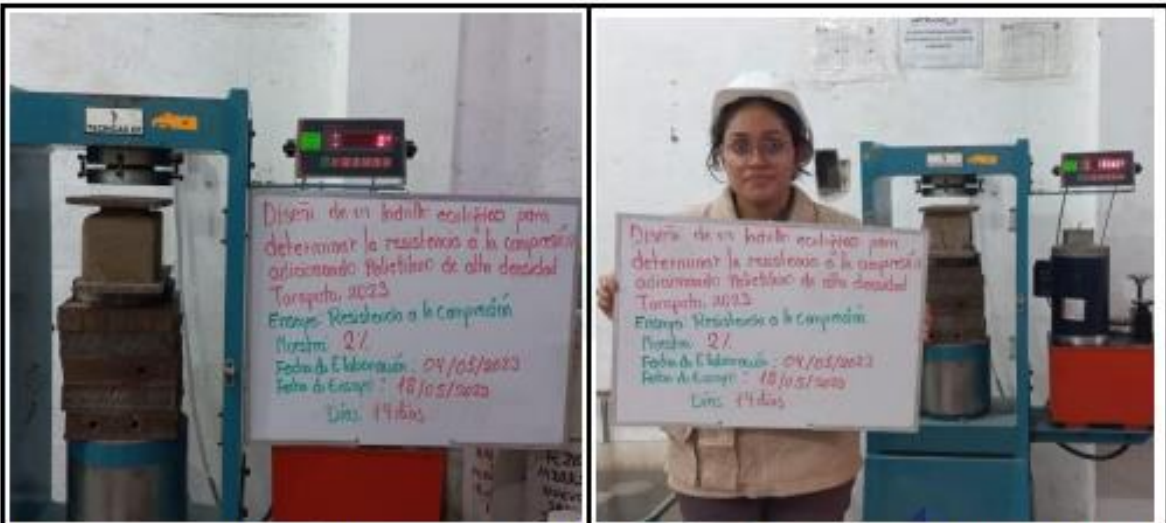 Diseño de un ladrillo ecológico para
determinar la resistencia a la compresión
adicionando Polietileno de alta densidad
Tarapoto, 2023
Ensayo: Resistencia a la compresión
Muestra: 2%
Fecha de Elaboración: 04/05/2023
Fecha de Ensayo: 18/05/2023
Días 14 días
Diseño de un ladrillo ecológico para
determinar la resistencia a la compresión
adicionando Polietileno de alta densidad
Tarapoto, 2023
Ensayo: Resistencia a la compresión
Muestra: 2%
Fecha de Elaboración: 04/05/2023
Fecha de Ensayo: 18/05/2023
Días 14 días